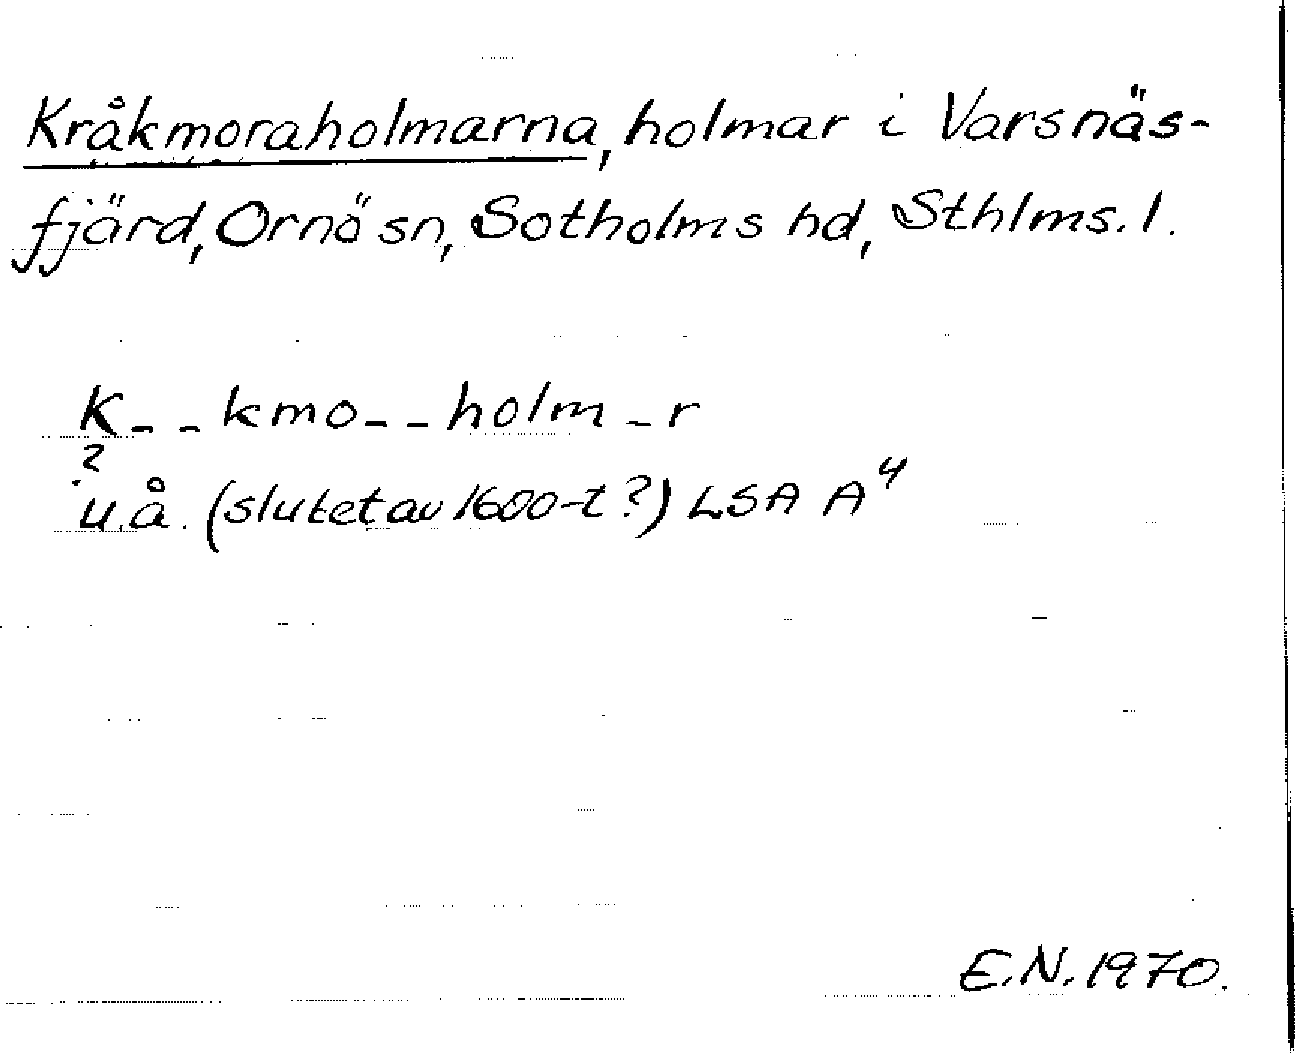 Kråkmoraholmarna, holmar i Varsnäs-
fjärd, Ornö sn, Sotholms hd, Sthlms. l.
K--kmo--holm-r
?
u.å. (slutet av 1600-t?) LSA A⁴
E.N. 1970.